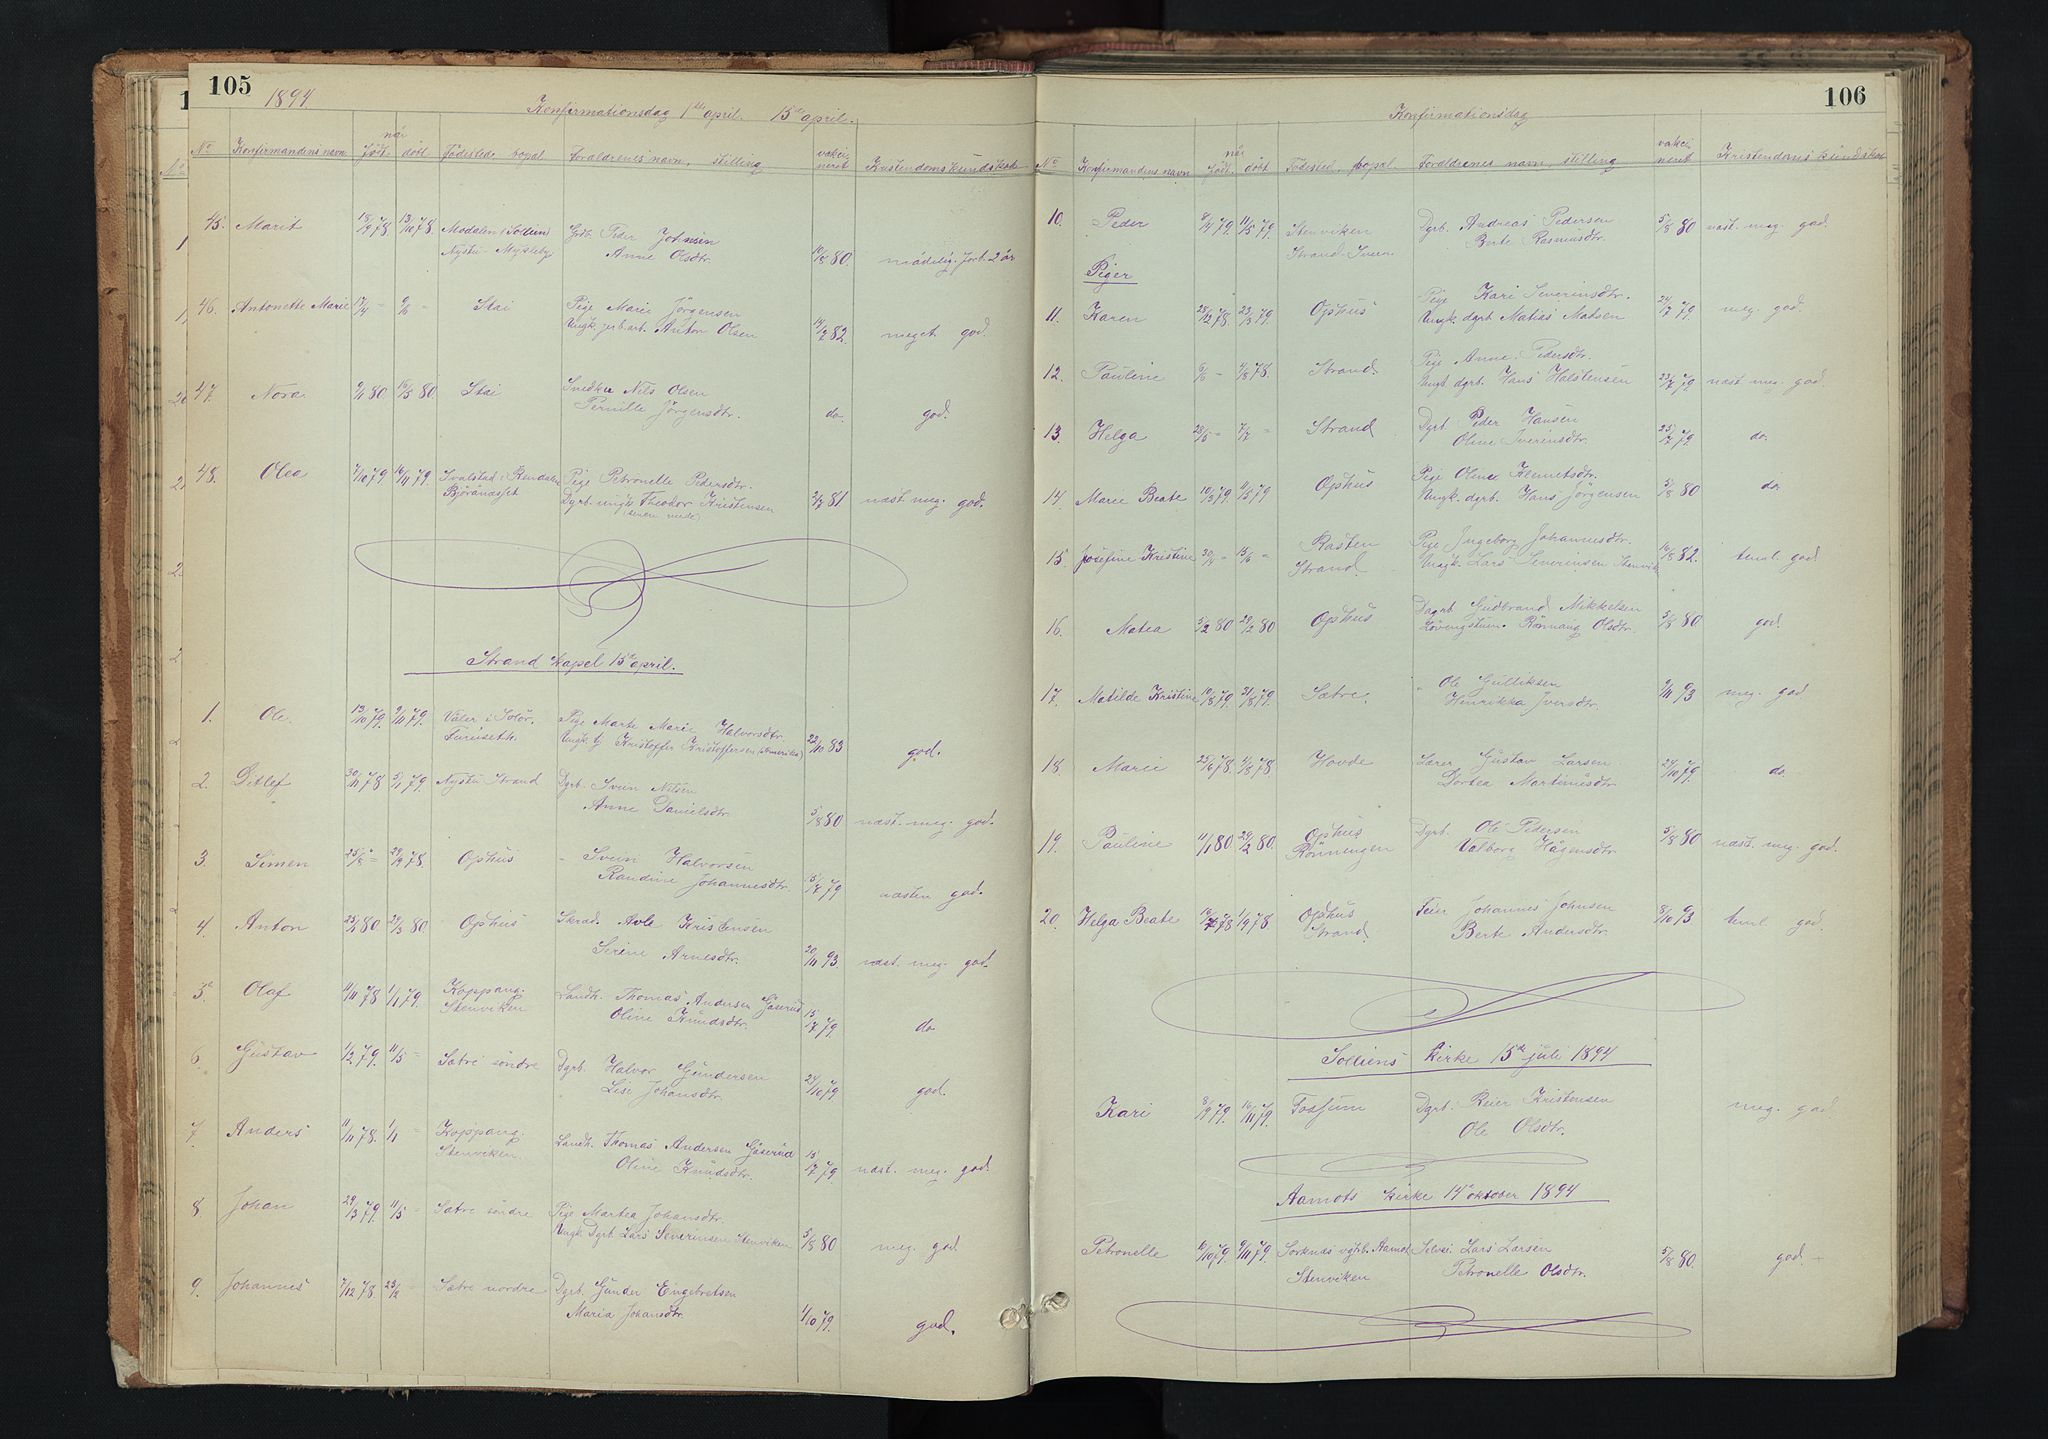 105
1894
Konfirmationsdag 1ste april. 15de april.
No Konfirmandens navn når født døbt Fødested, bopæl Forældrenes navn, stilling vakcineret Kristendomskundskab
45. Marit 18/9 78. 13/10 78. Modalen (Sollien) Grdb. Peder Johnsen
Nystu - Mykleby Anne Olsdtr. 10/8 80. mådelig. forb. 2 år
46. Antonette Marie 17/4 = 9/6 = Stai Pige Marie Jörgensen
Ungk. jrb.arb. Anton Olsen 14/7 82. meget god.
47. Nora 9/1 80 16/5 80 Stai Snedker Nils Olsen
Pernille Jörgensdtr. do. god.
48. Olea 7/10 79 16/11 79. i Rendalen Pige Petronelle Pedersdtr.
Björänæsset Dgrb. ungk. Theodor Kristensen 2/7 81 næst. meg. god.
Strand kapel 15de april.
1. Ole 13/10 79. 9/11 79. Våler i Solör. Pige Marte Marie Halvorsdtr.
Furuseth. Ungk. tj. Kristoffer Kristoffersen (Amerika) 22/10 83 god.
2. Ditlef 30/11 78 5/1 79. Nystu Strand Dgrb. Svein Nilsen
Anne Danielsdtr. 5/8 80 næst. meg. god.
3. Simen 25/8 = 29/9 78. Ophus " Svein Halvorsen
Randine Johannesdtr. 15/7 79 næsten god.
4. Anton 23/1 80 29/3 80 Ophus Skrad. Avle Kristensen
Sirine Arnesdtr. 20/11 93. næst. meg. god.
5. Olaf 11/11 78 1/1 79. Koppang. Landh. Thomas Andersen Gåserud
Stenviken Oline Knudsdtr. 15/7 79. do
6 Gustav 1/2 79. 11/5 = Sætre söndre Dgrb. Halvor Gundersen
Lise Johansdtr. 24/10 79 god.
7 Anders 11/11 78. 1/1 Koppang. Landh. Thomas Andersen Gåserud
Stenviken. Oline Knudsdtr. 15/7 79 næst. meg. god.
8. Johan 29/3 79. 11/5 = Sætre söndre Pige Martea Johansdtr.
Ungk. Dgrb. Lars Severinsen Stenviken 5/8 80 meg. god
9. Johannes 7/12 78. 23/2 = Sætre nordre Dgrb. Gunder Engebretsen
Maria Johansdtr. 1/10 79. god.
106
Konfirmationsdag
No Konfirmandens navn når født døbt Fødested, bopæl Forældrenes navn, stilling vakcineret Kristendomskundskab
10. Peder 8/4 79. 11/5 79. Stenviken Dgrb. Andreas Pedersen 5/8 80 næst. meg. god.
Strand - Svein Berte Rasmusdtr.
Piger
11. Karen 28/12 78. 23/3 79. Ophus Pige Kari Severinsdtr.
Ungk. dgrb Matias Matsen 24/7 79. meg. god.
12. Pauline 6/6 - 4/8 78. Strand. Pige Anne Pedersdtr.
Ungk. dgrb. Hans Halstensen 23/7 79. næst meg. god.
13. Helga 28/5 = 7/7 = Strand Dgrb Peder Hansen
Oline Iverinsdtr. 25/7 79. do.
14. Marie Beate 10/3 79. 11/5 79 Ophus Pige Oline Klemetsdtr.
Ungk. dgrb. Hans Jörgensen 5/8 80 do.
15. Josefine Kristine 30/4 = 15/6 = Rasten Pige Ingeborg Johannesdtr.
Strand Ungk. Lars Severinsen Stenvik 16/8 82. teml. god
16. Matea 5/2 80 29/2 80 Ophus Dagrb. Gudbrand Mikkelsen
Rönnaug Olsdtr. 5/8 80 god.
17. Matilde Kristine 10/8 79. 31/8 79. Sætre. " Ole Gulliksen
Henrikka Iversdtr. 9/11 93 meg. god
18. Marie 23/6 78. 4/8 78 Hovde Lærer Gustav Larsen
Dortea Martinusdtr. 24/10 79. do
19. Pauline 11/1 80 29/2 80. Ophus Dgrb. Ole Pedersen
Rönningen Valborg Hågensdtr. 5/8 80 næst. meg. god.
20. Helga Beate 16/7 78 1/9 78. Ophus Feier Johannes Johnsen
Strand. Berte Andersdtr. 8/10 93 teml god.
Solliens kirke 15de juli 1894
Kari 8/9 79. 16/11 79. Fossum Dgrb. Reier Kristensen meg. god.
Ole Olsdtr.
Aamots kirke 14de oktober 1894
Petronelle 10/10 79. 9/11 79. Sorknæs vgtb. Aamot Selvei. Lars Larsen
Stenviken Petronelle Olsdtr. 5/8 80. god.